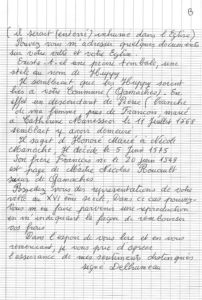 B
( il serait (enterré) inhumé dans l'Eglise)
Pouvez vous m'adresser quelques documents
sur votre ville et votre Eglise.
Existe t-il une pierre tombale, une
stèle au nom de Huppy
Il semblerait que les Huppy soient
liés à votre Commune (Gamaches). En
effet un descendant de Pierre (branche
de ma femme) fils de François marié
à Catherine Manessier le 11 Juillet 1568
semblait y avoir demeuré
Il s'agit d'Honoré Marié à Nicole
Son frère François né le 20 juin 1549
est page de Maître Nicolas Rouault
sieur de Gamaches.
Possédez vous des représentations de votre
ville au XVI ème siècle. Dans ce cas pouvez
vous m'en faire parvenir une reproduction
en m'indiquant la façon de rembourser
vos frais
Dans l'espoir de vous lire et en vous
remerciant, je vous prie d'agréer
l'assurance de mes sentiments distingués
signé